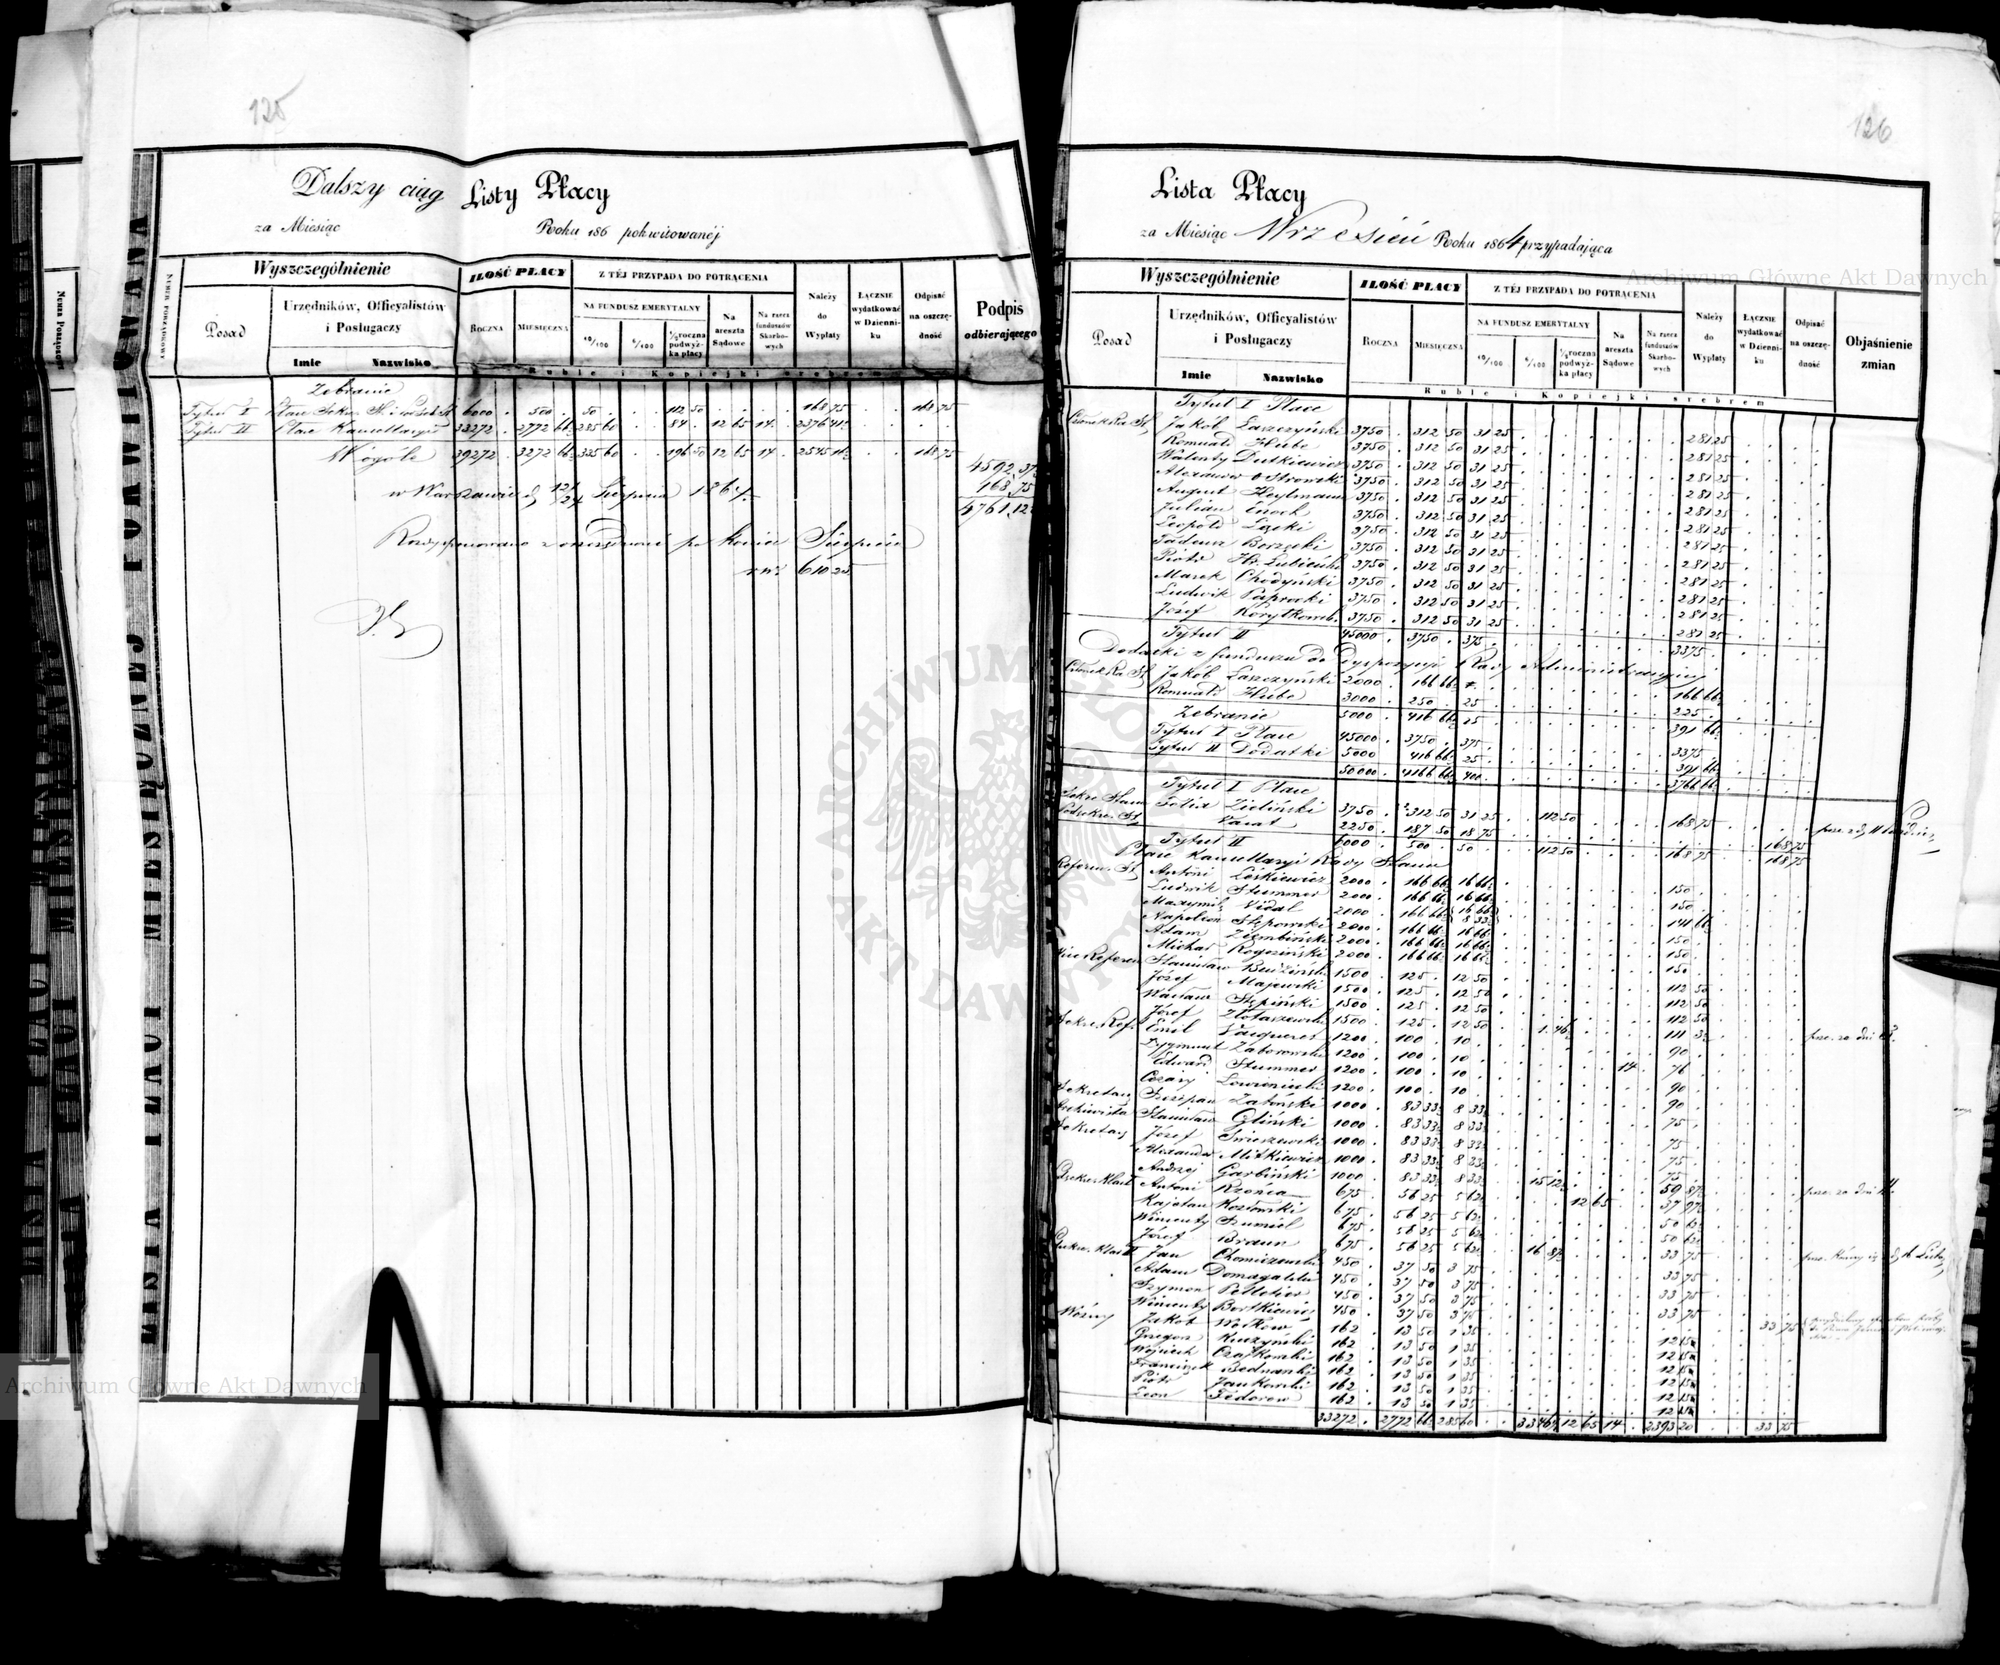 125
Dalszy ciąg Listy Płacy
za Miesiąc Roku 186 pokwitowanéj
NUMER PORZĄDKOWY
Wyszczególnienie
ILOŚĆ PŁACY
Z TÉJ PRZYPADA DO POTRĄCENIA
Posad
Urzędników, Officyalistów i Posługaczy
Imie Nazwisko
ROCZNA MIESIĘCZNA
NA FUNDUSZ EMERYTALNY
10/100 6/100 1/3 roczna podwyżka płacy
Na areszta Sądowe
Na rzecz funduszów Skarbowych
Należy do Wypłaty
ŁĄCZNIE wydatkować w Dzienniku
Odpisać na oszczędność
Podpis odbierającego
Ruble i Kopiejki srebrem
Zebranie
Tytuł I Płace Sekr. St. 6000 . 500 . 50 . 112 50 168 75 168 75
Tytuł II Płace Kancellaryi 33272 . 2772 66 285 60 84 . 12 65 14 . 2376 41
W ogóle 39272 . 3272 66 335 60 196 50 12 65 14 . 2545 16 168 75
4592 37
168 75
4761 12
w Warszawie d. 12/24 Sierpnia 1864.
po koniec Sierpnia
610 25
LISTA PŁACY MIESIĘCZNEJ POKWITOWANA
126
Lista Płacy
za Miesiąc Wrzesień Roku 1864 przypadająca
Wyszczególnienie
ILOŚĆ PŁACY
Z TÉJ PRZYPADA DO POTRĄCENIA
Posad
Urzędników, Officyalistów i Posługaczy
Imie Nazwisko
ROCZNA MIESIĘCZNA
NA FUNDUSZ EMERYTALNY
10/100 6/100 1/3 roczna podwyżka płacy
Na areszta Sądowe
Na rzecz funduszów Skarbowych
Należy do Wypłaty
ŁĄCZNIE wydatkować w Dzienniku
Odpisać na oszczędność
Objaśnienie zmian
Ruble i Kopiejki srebrem
Tytuł I Płace
Członek Ra. St. Jakób Łaszczyński 3750 . 312 50 31 25 281 25
Romuald Hube 3750 . 312 50 31 25 281 25
Walenty Dutkiewicz 3750 . 312 50 31 25 281 25
Alexander Ostrowski 3750 . 312 50 31 25 281 25
August Heylmann 3750 . 312 50 31 25 281 25
Julian Enoch 3750 . 312 50 31 25 281 25
Leopold Łęcki 3750 . 312 50 31 25 281 25
Tadeusz Borzęcki 3750 . 312 50 31 25 281 25
Piotr Hr. Łubieński 3750 . 312 50 31 25 281 25
Marek Chodyński 3750 . 312 50 31 25 281 25
Ludwik Paprocki 3750 . 312 50 31 25 281 25
Józef Korytkowski 3750 . 312 50 31 25 281 25
45000 . 3750 . 375 . 3375 .
Tytuł II
Dodatki z funduszu do dyspozycyi Rady Administracyjnej
Członek Ra. St. Jakób Łaszczyński 2000 . 166 66 166 66
Romuald Hube 3000 . 250 . 25 . 225 .
5000 . 416 66 25 . 391 66
Zebranie
Tytuł I Płace 45000 . 3750 . 375 . 3375 .
Tytuł II Dodatki 5000 . 416 66 25 . 391 66
50000 . 4166 66 400 . 3766 66
Tytuł I Płace
Sekre. Stanu Felix Zieliński 3750 . 312 50 31 25 112 50 168 75
Podsekre. St. Vacat 2250 . 187 50 18 75 168 75
6000 . 500 . 50 . 112 50 168 75 168 75
Tytuł II
Płace Kancellaryi Rady Stanu
Referen. St. Antoni Leśkiewicz 2000 . 166 66 16 66 150 .
Ludwik Stummer 2000 . 166 66 16 66 150 .
Maxymil. Vidal 2000 . 166 66 16 66 8 33 141 66
Napoleon Stępowski 2000 . 166 66 16 66 150 .
Adam Ziembiński 2000 . 166 66 16 66 150 .
Michał Rogoziński 2000 . 166 66 16 66 150 .
Vice Referen. Stanisław Budziński 1500 . 125 . 12 50 112 50
Józef Majewski 1500 . 125 . 12 50 112 50
Wacław Stępiński 1500 . 125 . 12 50 112 50
Józef Złotaszewski 1500 . 125 . 12 50 1 46 111 3
Sekre. Ref. Emil Vacqueret 1200 . 100 . 10 . 90 .
Zygmunt Zaborowski 1200 . 100 . 10 . 14 . 76 .
Edward Stummer 1200 . 100 . 10 . 90 .
Cezary 1200 . 100 . 10 . 90 .
Sekretarz Szczepan Zatorski 1000 . 83 33 8 33 75 .
Archiwista Stanisław Gliński 1000 . 83 33 8 33 75 .
Sekretarz Józef Świeszewski 1000 . 83 33 8 33 75 .
Alexander Mitkiewicz 1000 . 83 33 8 33 75 .
Andrzej Garbiński 1000 . 83 33 8 33 15 12 59 87
Antoni Rzońca 675 . 56 25 5 62 12 65 37 97
Kajetan Kozłowski 675 . 56 25 5 62 50 62
Wincenty Szumiel 675 . 56 25 5 62 50 62
Józef Braun 675 . 56 25 5 62 16 87 33 75
Jan Chomiczewski 450 . 37 50 3 75 33 75
Adam Domagalski 450 . 37 50 3 75 33 75
Szymon Pelletier 450 . 37 50 3 75 33 75
Wincenty Bortkiewicz 450 . 37 50 3 75 33 75
Woźny Jakób Wołkow 162 . 13 50 1 35 12 15
Grzegorz Kuczyński 162 . 13 50 1 35 12 15
Wojciech Czajkowski 162 . 13 50 1 35 12 15
Franciszek Bednarski 162 . 13 50 1 35 12 15
Piotr Jankowski 162 . 13 50 1 35 12 15
Leon Fedorow 162 . 13 50 1 35 12 15
33272 . 2772 66 285 60 33 46 12 65 14 . 2393 20 33 75
Archiwum Główne Akt Dawnych
Archiwum Główne Akt Dawnych
ARCHIWUM GŁÓWNE AKT DAWNYCH